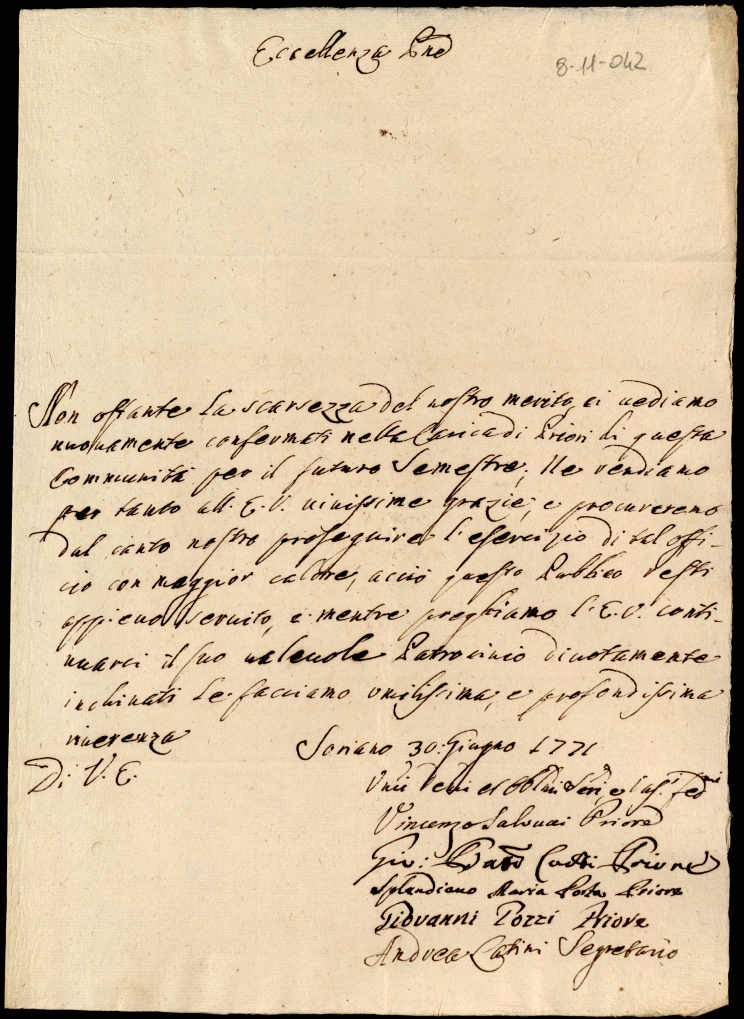 Eccellenza Pne
8-11-042
Non ostante la scarsezza del nostro merito, ci vediamo
nuovamente confermati nella Carica di Priori di questa
Communità per il futuro Semestre; Ne rendiamo
per tanto all'E.V. vivissime grazie, e procureremo
dal canto nostro proseguire l'esercizio di tal offi-
cio con maggior calore, acciò questo Publico resti
appieno servito, e mentre preghiamo l'E.V. conti-
nuarci il suo valevole Patrocinio divotamente
inchinati Le facciamo umilissima, e profondissima
riverenza
Soriano 30: Giugno 1771
Di V. E.
Vincenzo Salvuai Priore
Gio: Priore
Splandiano Maria Porta Priore
Giovanni Pozzi Priore
Andrea Catini Segretario